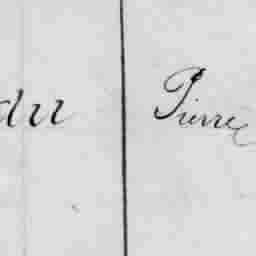 du Pierre